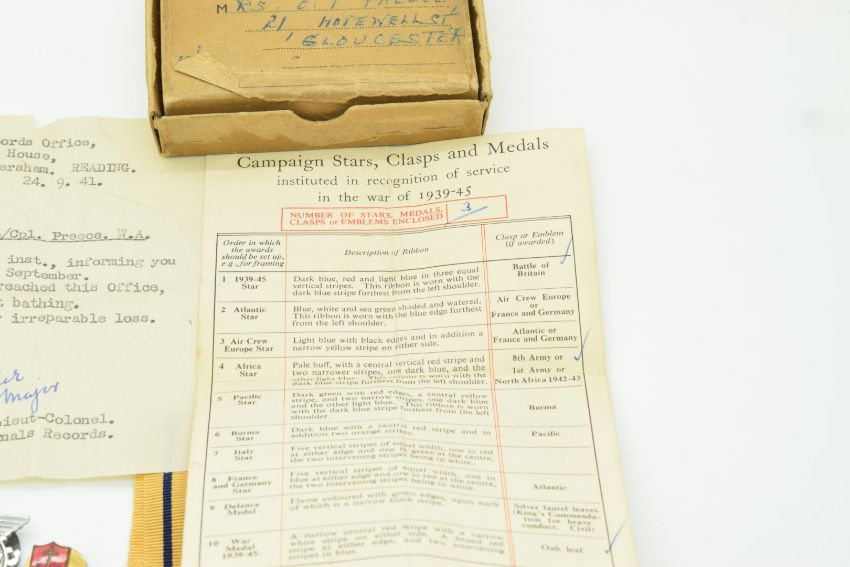 MRS.
21 HOPEWELL ST
GLOUCESTER
cords Office,
House,
ersham. READING.
24. 9. 41.
/Cpl. Preece. W.A.
inst., informing you
September.
reached this Office,
t bathing.
r irreparable loss.
Major
Lieut-Colonel.
nals Records.
Campaign Stars, Clasps and Medals
instituted in recognition of service
in the war of 1939-45
NUMBER OF STARS, MEDALS,
CLASPS or EMBLEMS ENCLOSED 3
Order in which
the awards
should be set up,
e.g., for framing
Description of Ribbon
Clasp or Emblem
(if awarded)
1 1939-45
Star
Dark blue, red and light blue in three equal
vertical stripes. This ribbon is worn with the
dark blue stripe furthest from the left shoulder.
Battle of
Britain
2 Atlantic
Star
Blue, white and sea green shaded and watered.
This ribbon is worn with the blue edge furthest
from the left shoulder.
Air Crew Europe
or
France and Germany
3 Air Crew
Europe Star
Light blue with black edges and in addition a
narrow yellow stripe on either side.
Atlantic or
France and Germany
4 Africa
Star
Pale buff, with a central vertical red stripe and
two narrower stripes, one dark blue, and the
other light blue. This ribbon is worn with the
dark blue stripe furthest from the left shoulder.
8th Army or
1st Army or
North Africa 1942-43
5 Pacific
Star
Dark green with red edges, a central yellow
stripe, and two narrow stripes, one dark blue
and the other light blue. This ribbon is worn
with the dark blue stripe furthest from the left
shoulder.
Burma
6 Burma
Star
Dark blue with a central red stripe and in
addition two orange stripes.
Pacific
7 Italy
Star
Five vertical stripes of equal width, one in red
at either edge and one in green at the centre,
the two intervening stripes being in white.
8 France
and Germany
Star
Five vertical stripes of equal width, one in
blue at either edge and one in red at the centre,
the two intervening stripes being in white.
Atlantic
9 Defence
Medal
Flame coloured with green edges, upon each
of which is a narrow black stripe.
Silver laurel leaves
(King's Commenda-
tion for brave
conduct. Civil)
10 War
Medal
1939-45.
A narrow central red stripe with a narrow
white stripe on either side. A broad red
stripe at either edge, and two intervening
stripes in blue.
Oak leaf